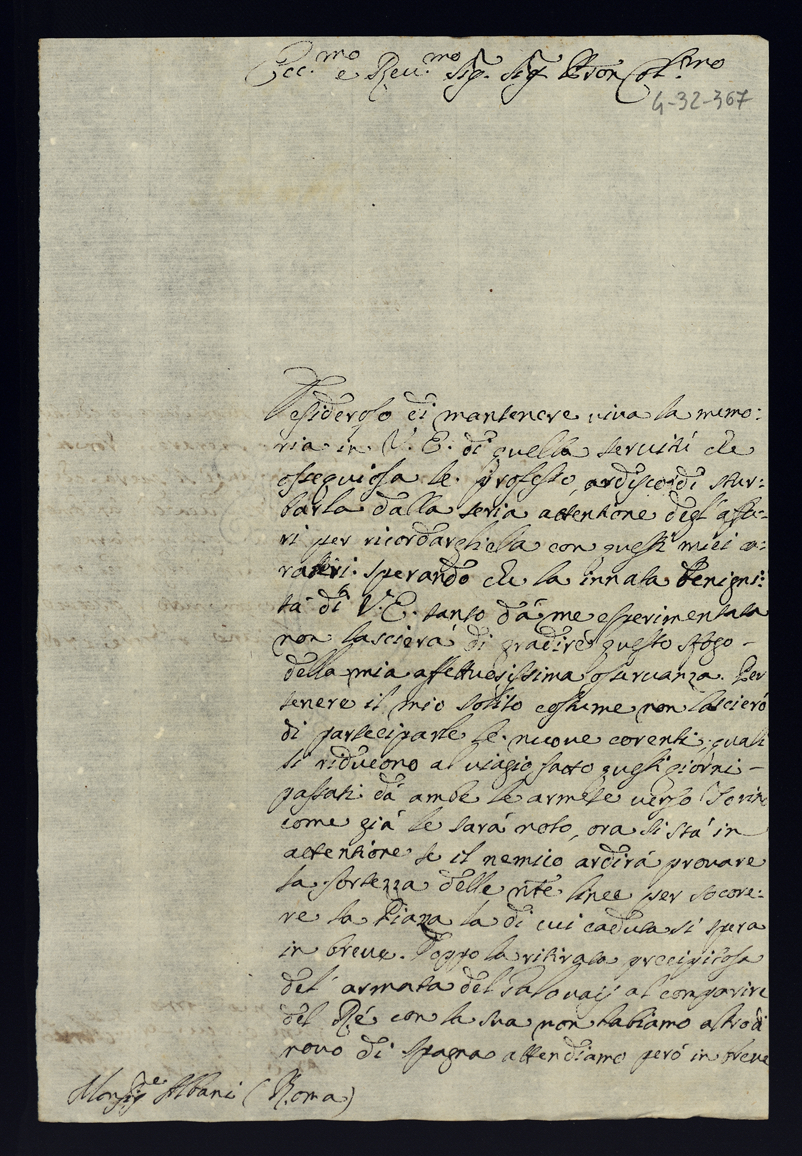 Ecc.mo e Reu.mo Sig. Sig. Pron Col.mo
4-32-367
Desideroso di mantenere viva la memo:
ria in V. E. di quella servitù che
ossequiosa le professo, ardisco di stur:
barla dalla seria attentione degl' affa:
ri per ricordargliela con questi miei ca:
ratteri. sperando che la innata benigni:
tà di V. E. tanto dà me esperimentata
non lascierà di gradire questo sfogo –
della mia affettuosissima osservanza. Per
tenere il mio solito costume non lascierò
di participarle le nuove corenti, quali
si riducono al viagio fatto questi giorni –
passati dà ambe le armate verso Torin
come già le sarà noto, ora si stà in
attentione se il nemico ardirà provare
la fortezza delle nře linee per socore:
re la Piazza la di cui caduta si spera
in breve. Doppo la ritirata precipitosa
del' armata del al comparire
del Rè con la sua non habiamo altro di
novo di Spagna attendiamo però in breve
Monsig.re Albani (Roma)